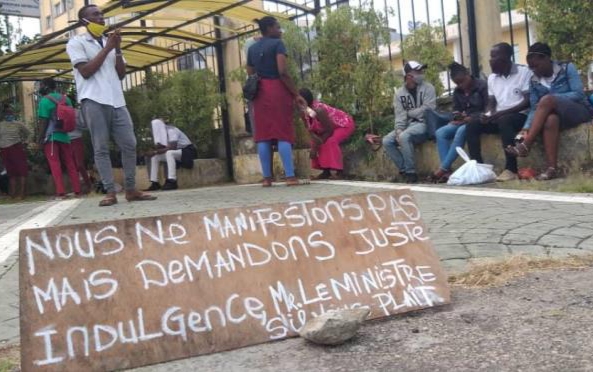 NOUS NE MANIFESTONS PAS
MAIS DEMANDONS JUSTE
INDULGENCE, MR LE MINISTRE
S'IL VOUS PLAÎT